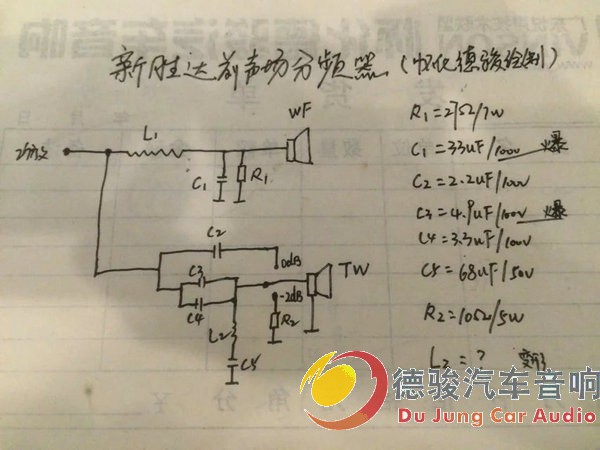 新胜达前声场分频器（怀化德骏绘制）
WF
L1
功放
C1
R1
C2
0dB
TW
C3
-2dB
C4
R2
L2
C5
R1=27Ω/7W
C1=33uF/100V 爆
C2=2.2uF/100V
C3=4.9uF/100V 爆
C4=3.3uF/100V
C5=68uF/50V
R2=10Ω/5W
L2=? 变形
德骏汽车音响
Du Jung Car Audio